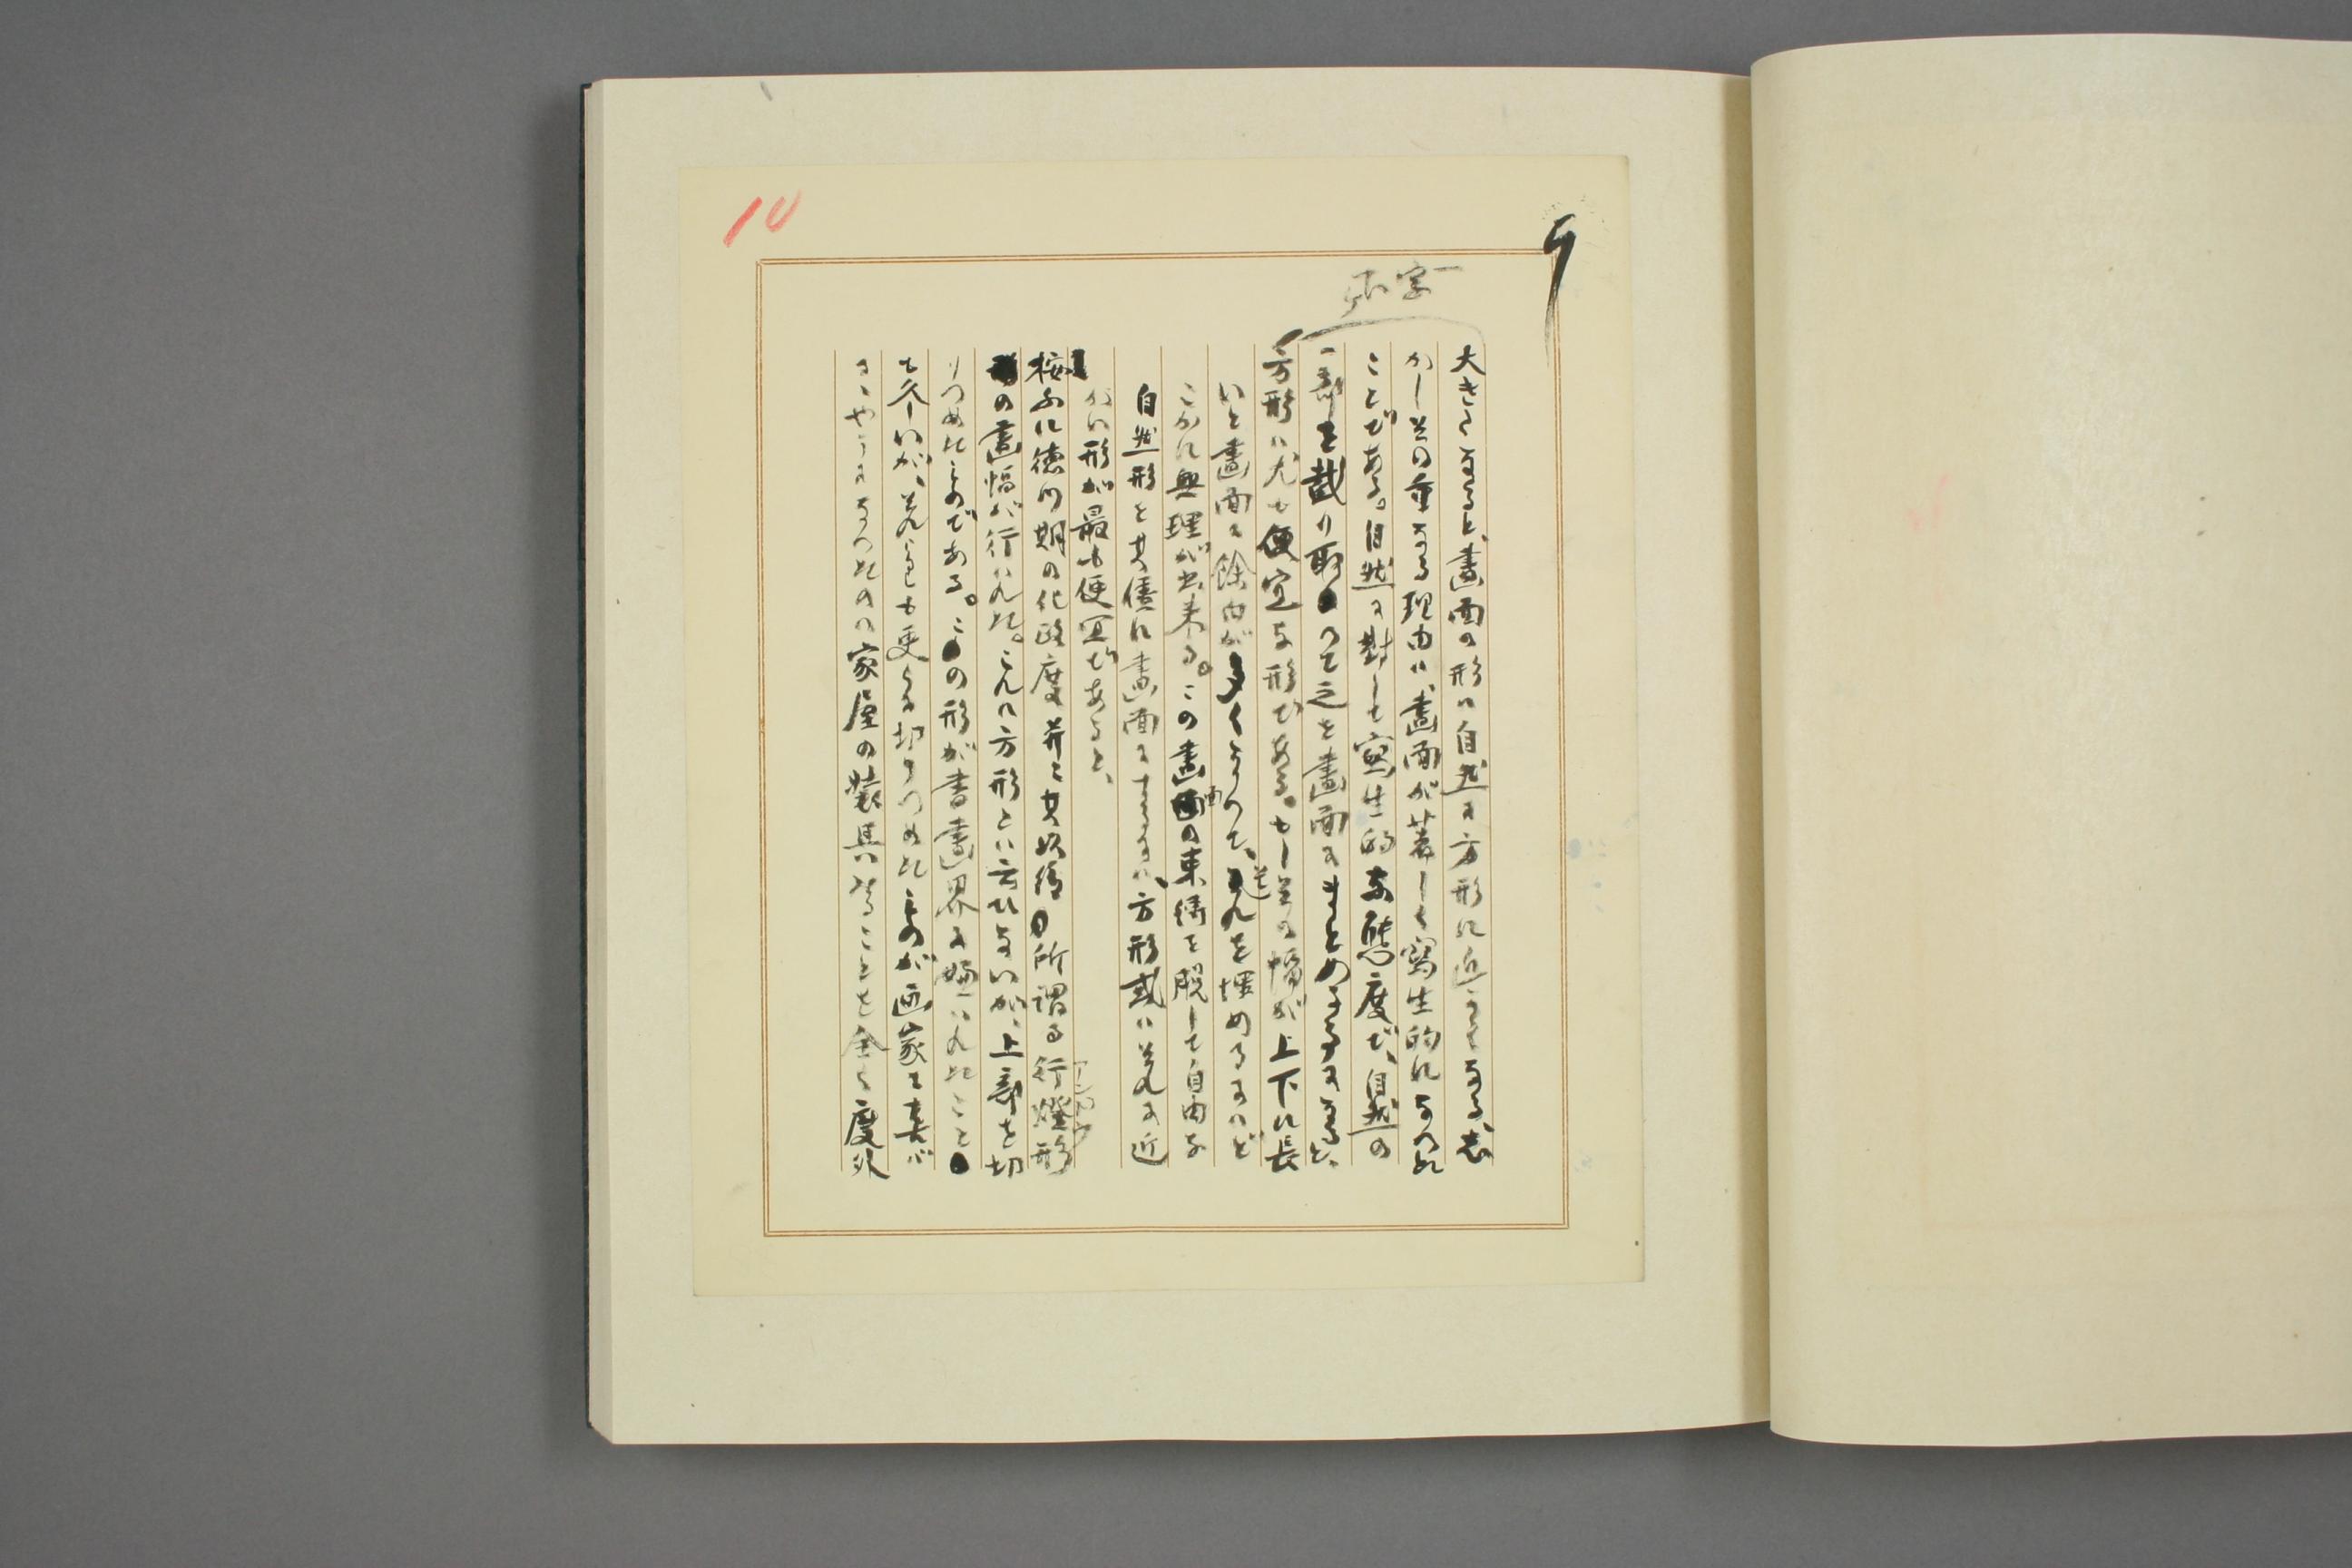 10
大きくなると、畫面の形は自然に方形に近くなる、志
かし其の重なる理由は、畫面が著しく寫生的になつた
ことである。自然に對して寫生的な態度で、自然の
一部を截り取つて之を畫面にまとめるになると、
方形は尤も便宜な形である。もし其の幅が上下に長
いと畫面に餘白が多くなつて、其れを埋めるにはど
こかに無理が出来る。この畫面の束縛を脱して自由な
自然形を其儘に畫面にするには、方形或は其れに近
かい形が最も便宜であると、
按ふに徳川期の化政度并に其以後所謂る行燈形
アンドウ
の畫幅が行はれた。これは方形とは言ひないが、上部を切
りつめたものである。この形が書畫界に嫌はれたこと
も久しいが、其れよりも更らに切りつめたものが画家に喜ば
るゝやうになつたのは家屋の裝具いることを全く度外